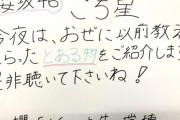 安坂46
こち星
今夜は、おぜに以前教え
らったとある物をご紹介しま
是非聴いて下さいね!